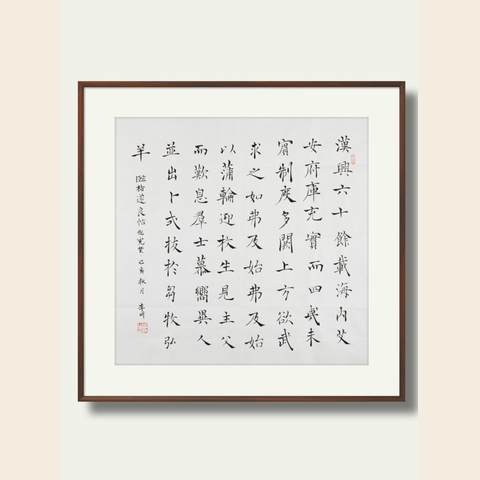 漢興六十餘載海内艾
安府庫充實而四夷未
賓制度多闕上方欲武
求之如弗及始弗及始
以蒲輪迎枚生見主父
而歎息羣士慕嚮異人
並出卜式拔於芻牧弘
羊
臨褚遂良帖倪寬贊己亥秋月李